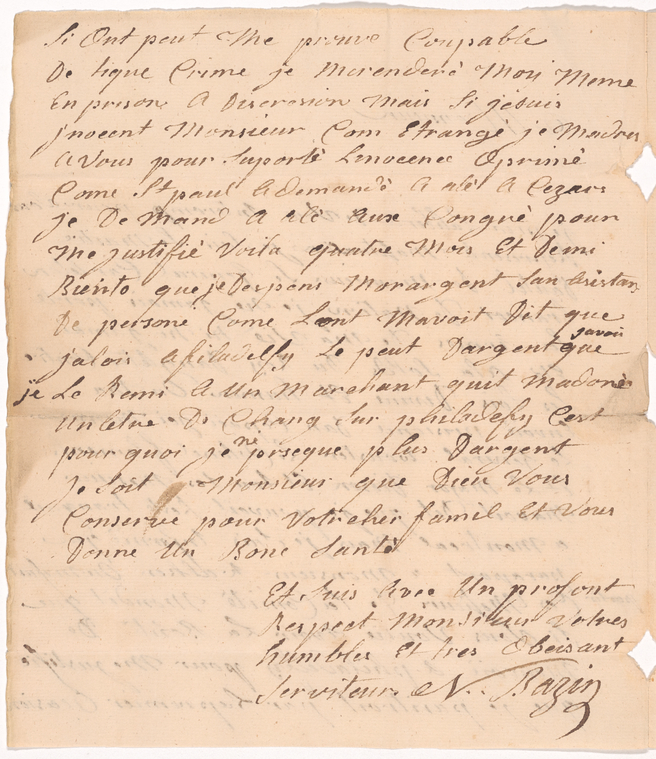 Si Ont peut Me prouve Coupable
De lique Crime je Morenderé Moii Meme
En prison A Discresion Mais Si jesuis
jnocent Monsieur Com Etrangé je Madres
A Vous pour Suporté Linocence Oprimé
Come St paul A demandé A alé A Cezars
je De Mand A Alé Aux Congré pour
Me justifié Voila quatre Mois Et Demi
Biento que je Despens Monargent San asistans
De persone Come Lont Mavoit Dit que
jalois A filadelfy Le peut Dargent que javois
je Le Remi A Un Marchant quit Madoné
Un Letre De Chang Sur philadefy Cest
pour quoi je ne presque plus Dargent
Je Soit Monsieur que Dieu Vous
Conserve pour Votre cher famil Et Vous
Donne Un Bone Santé
Et Suis Avec Un profont
Respect Monsieur Votres
humbles Et tres Obeisant
Serviteur N. Bazin